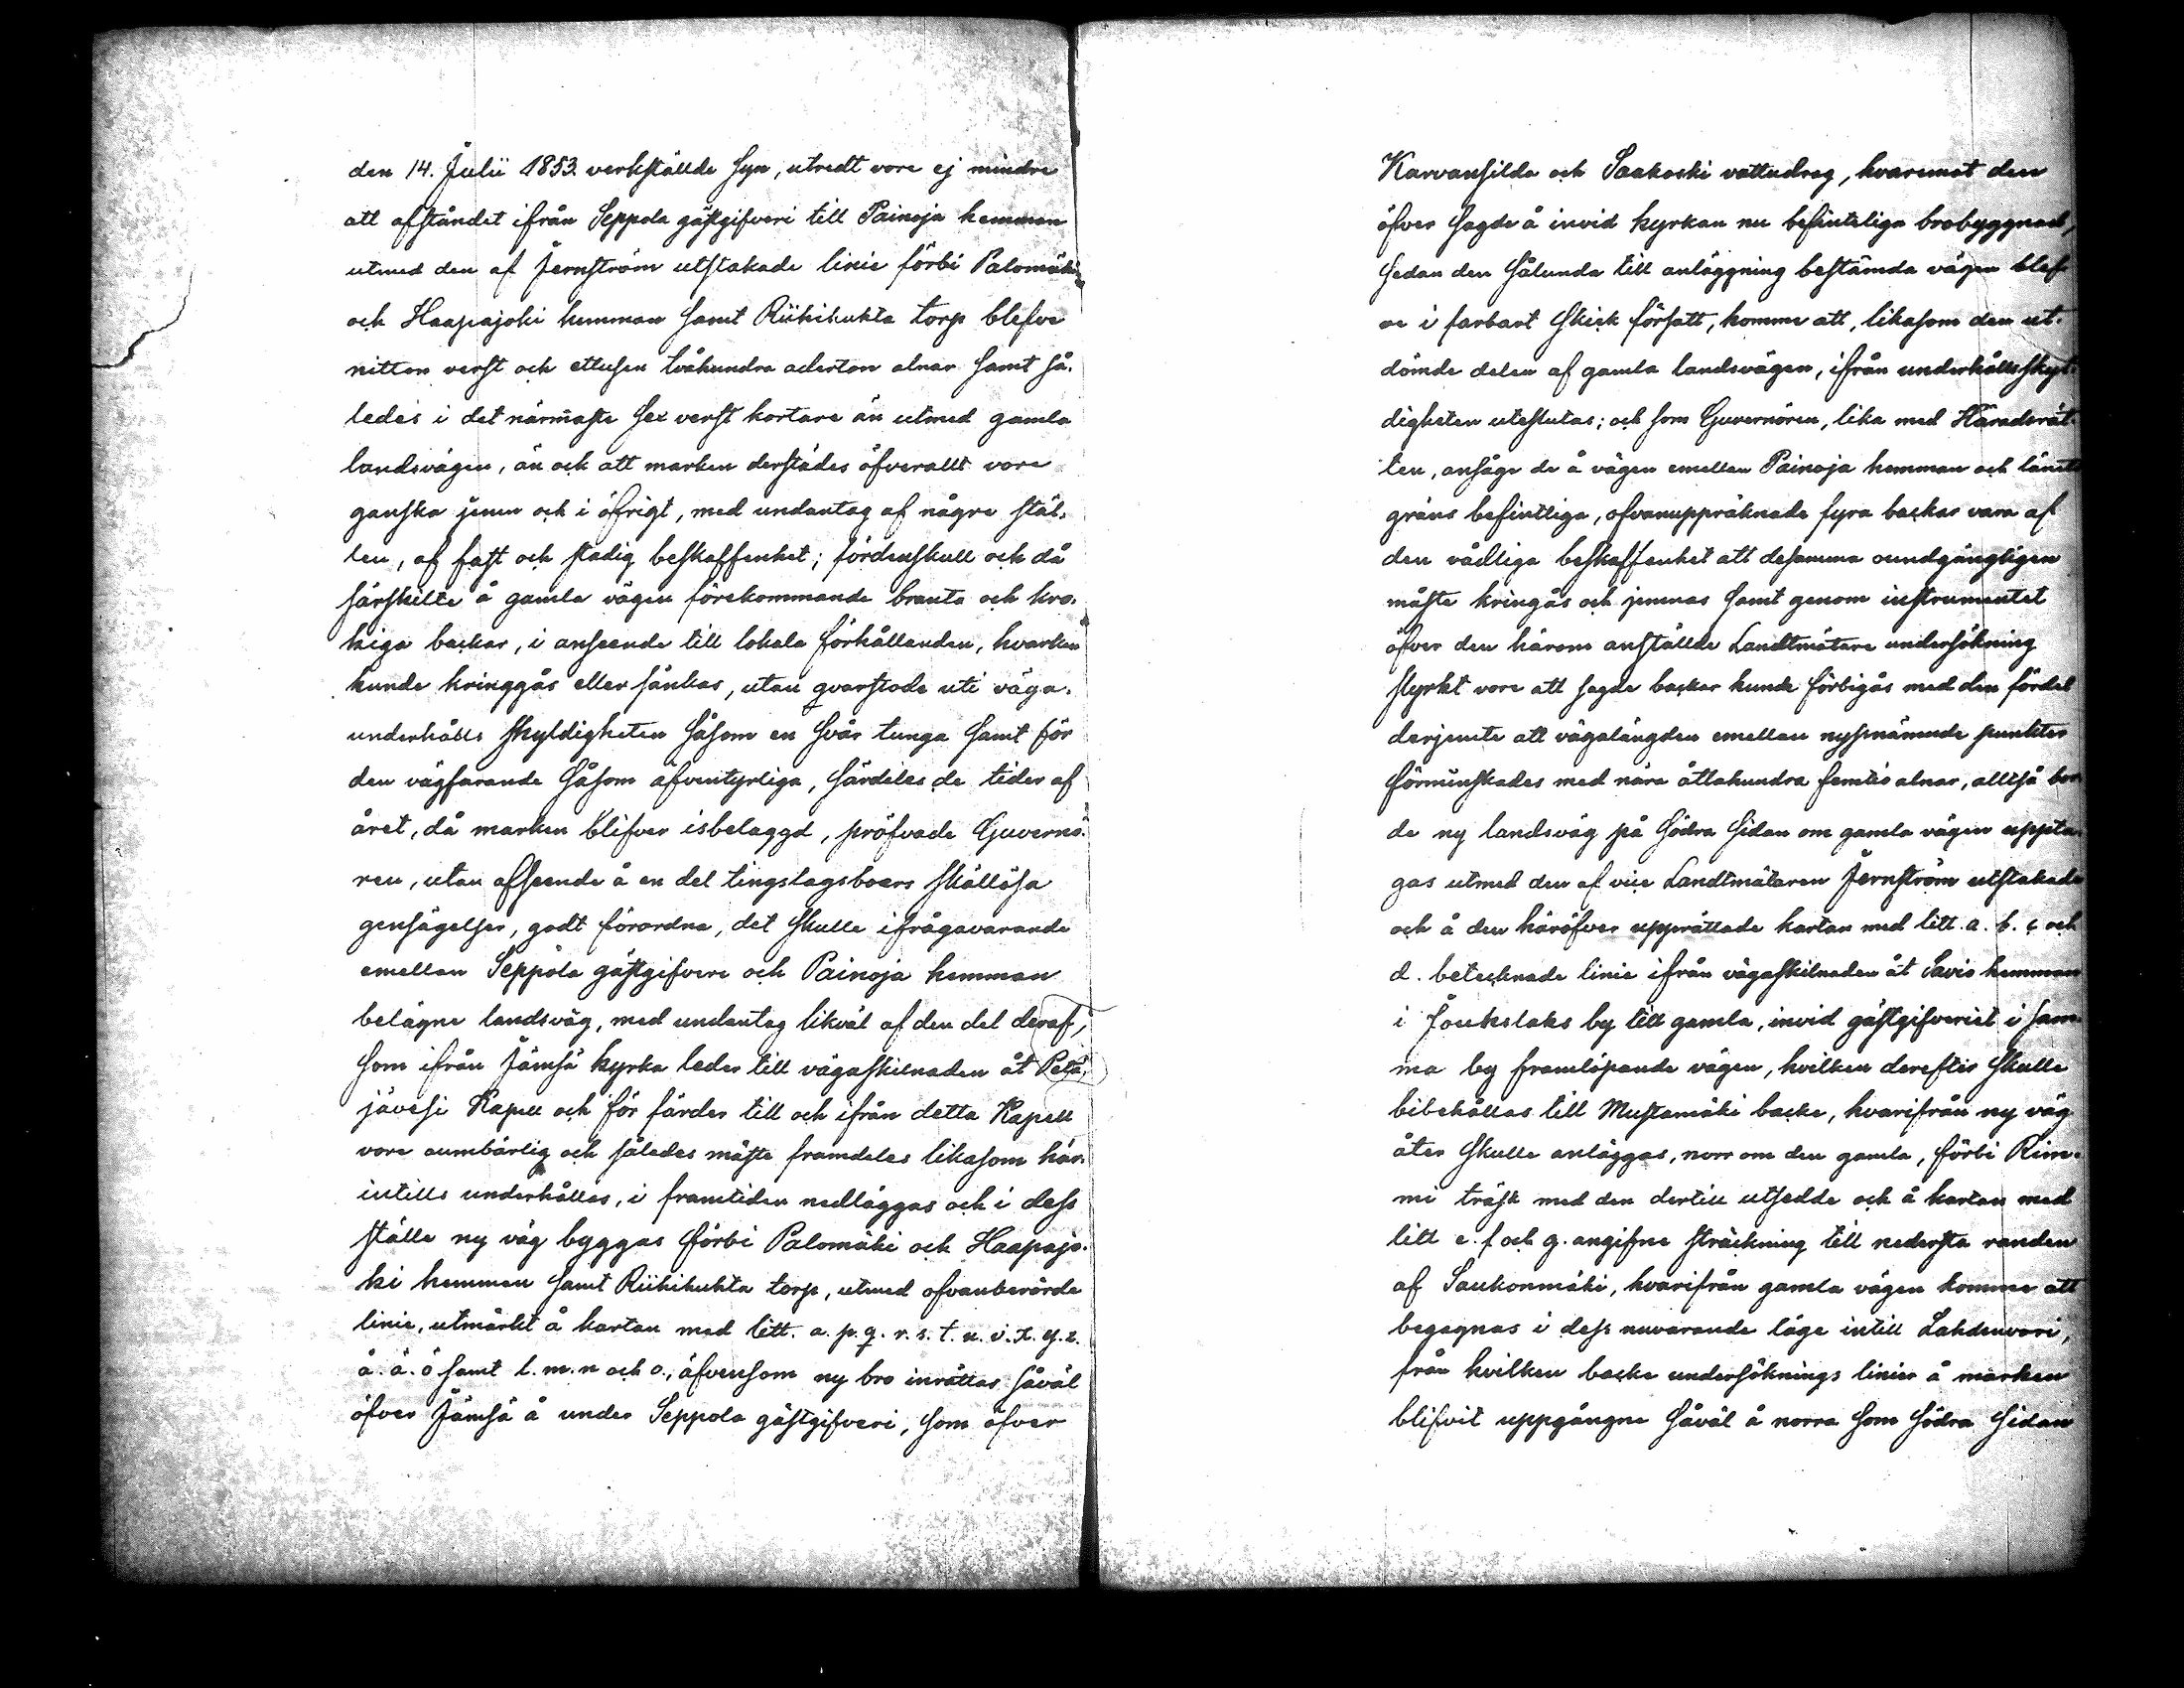 den 14. Julii 1853. verkställde syn, utredt vore ej mindre
att afståndet ifrån Seppola gästgifveri till Painoja hemman
utmed den af Jernström utstakade linie förbi Palomäki
och Haapajoki hemman samt Riihikukta torp blefve
nitton verst och ettusen tvåhundra aderton alnar samt så-
ledes i det närmaste sex verst kortare än utmed gamla
landsvägen, än ock att marken derstädes öfverallt vore
ganska jemn och i öfrigt, med undantag af någre stäl-
len, af fast och stadig beskaffenhet; fördenskull och då
särskilte å gamla vägen förekommande branta och kro-
kiga backar, i anseende till lokala förhållanden, hvarken
kunde kringgås eller sänkas, utan qvarstode uti väga-
underhålls skyldigheten såsom en svår tunga samt för
den vägfarande såsom äfventyrliga, särdeles de tider af
året, då marken blifver isbelaggd, pröfvade Guvernö-
ren, utan afseende å en del tingslagsboers skällösa
gensägelser, godt förordna, det skulle ifrågavarande
emellan Seppola gästgifvere och Painoja hemman
belägne landsväg, med undantag likväl af den del deraf,
som ifrån Jämsä kyrka leder till vägaskilnaden åt Petä-
jävesi Kapell och för färder till och ifrån detta Kapell
vore oumbärlig och således måste framdeles likasom här-
intills underhållas, i framtiden nedläggas och i dess
ställe ny väg byggas förbi Palomäki och Haapajo-
ki hemman samt Riihikukta torp, utmed ofvanberörde
linie, utmärkt å kartan med litt. a. p. q. r. s. t. u. v. x. y. z.
å. ä. ö samt l. m. n och o., äfvensom ny bro inrättas såväl
öfver Jämsä å under Seppola gästgifveri, som öfver
Karvansilda och Saakoski vattudrag, hvaremot den
öfver sagde å invid kyrkan nu befinteliga brobyggnad,
sedan den sålunda till anläggning bestämda vägen blef-
ve i farbart skick försatt, komme att, likasom den ut-
dömde delen af gamla landsvägen, ifrån underhållsskyl-
digheten uteslutas; och som Guvernören, lika med Häradsrät-
ten, ansåge de å vägen emellan Painoja hemman och länets
gräns befintliga, ofvanuppräknade fyra backar vara af
den vådliga beskaffenhet att desamma oundgängligen
måste kringås och jemnas samt genom instrumentet
öfver den härom anställde Landtmätare undersökning
styrkt vore att sagde backar kunde förbigås med den fördel
derjemte att vägalängden emellan nyssnämnde punkter
förminskades med nära åttahundra femtio alnar, alltså bor-
de ny landsväg på södra sidan om gamla vägen uppta-
gas utmed den af vice Landtmätaren Jernström utstakade
och å den häröfver upprättade kartan med litt. a. b. c och
d. betecknade linie ifrån vägaskilnaden åt Savio hemman
i Joukslaks by till gamla, invid gästgifveriet i sam-
ma by framlöpande vägen, hvilken derefter skulle
bibehållas till Mustamäki backe, hvarifrån ny väg
åter skulle anläggas, norr om den gamla, förbi Rim-
mi träsk med den dertill utsedde och å kartan med
litt e. f och g. angifne sträckning till nedersta randen
af Saukonmäki, hvarifrån gamla vägen komme att
begagnas i dess nuvarande läge intill Lahdenvori,
från hvilken backe undersöknings linier å marken
blifvit uppgångne såväl å norra som södra sidan